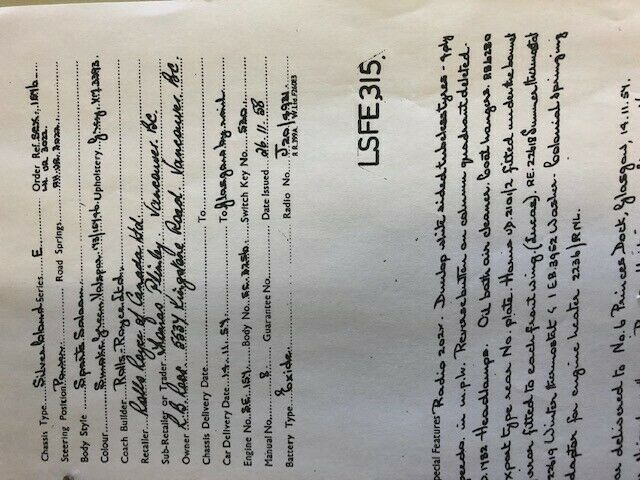 Chassis Type Silver Cloud Series E Order Ref. SCX. 1186
Steering Position Road Springs
Body Style Sports Saloon
Colour Smoke Green Upholstery Grey VM.3293
Coach Builder Rolls-Royce Ltd.
Retailer Rolls Royce of Canada Ltd.
Sub-Retailer or Trader Thomas Plimley Vancouver B.C.
Owner R.B. Road Vancouver B.C.
Chassis Delivery Date To
Car Delivery Date 14.11.59 To Glasgow by rail
Engine No. SE. 157. Body No. Switch Key No.
Manual No. Guarantee No. Date Issued 26.11.58
Battery Type Exide Radio No.
LSFE,315.
pecial Features Radio 202X. Dunlop white sided tubeless tyres - 4 ply
peedo. in m.p.h. Reverse button on column quadrant deleted.
Headlamps. Oil bath air cleaner. Coat hangers.
xport type rear No. plate. Horns fitted under the bonnet
fitted to each front wing (Lucas). RE.22618 Summer thermostat
22619 Winter thermostat & 1 EB.3952 Washer. Colonial springing
daptor for engine heater 2236/RNL.
ar delivered to No. 6 Princes Dock, Glasgow, 14.11.59.